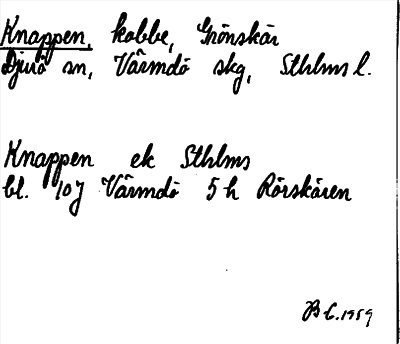 Knappen, kobbe, Grönskär
Djurö sn, Värmdö skg, Sthlms l.
Knappen ek Sthlms
bl. 10J Värmdö 5h Rörskären
B C. 1959